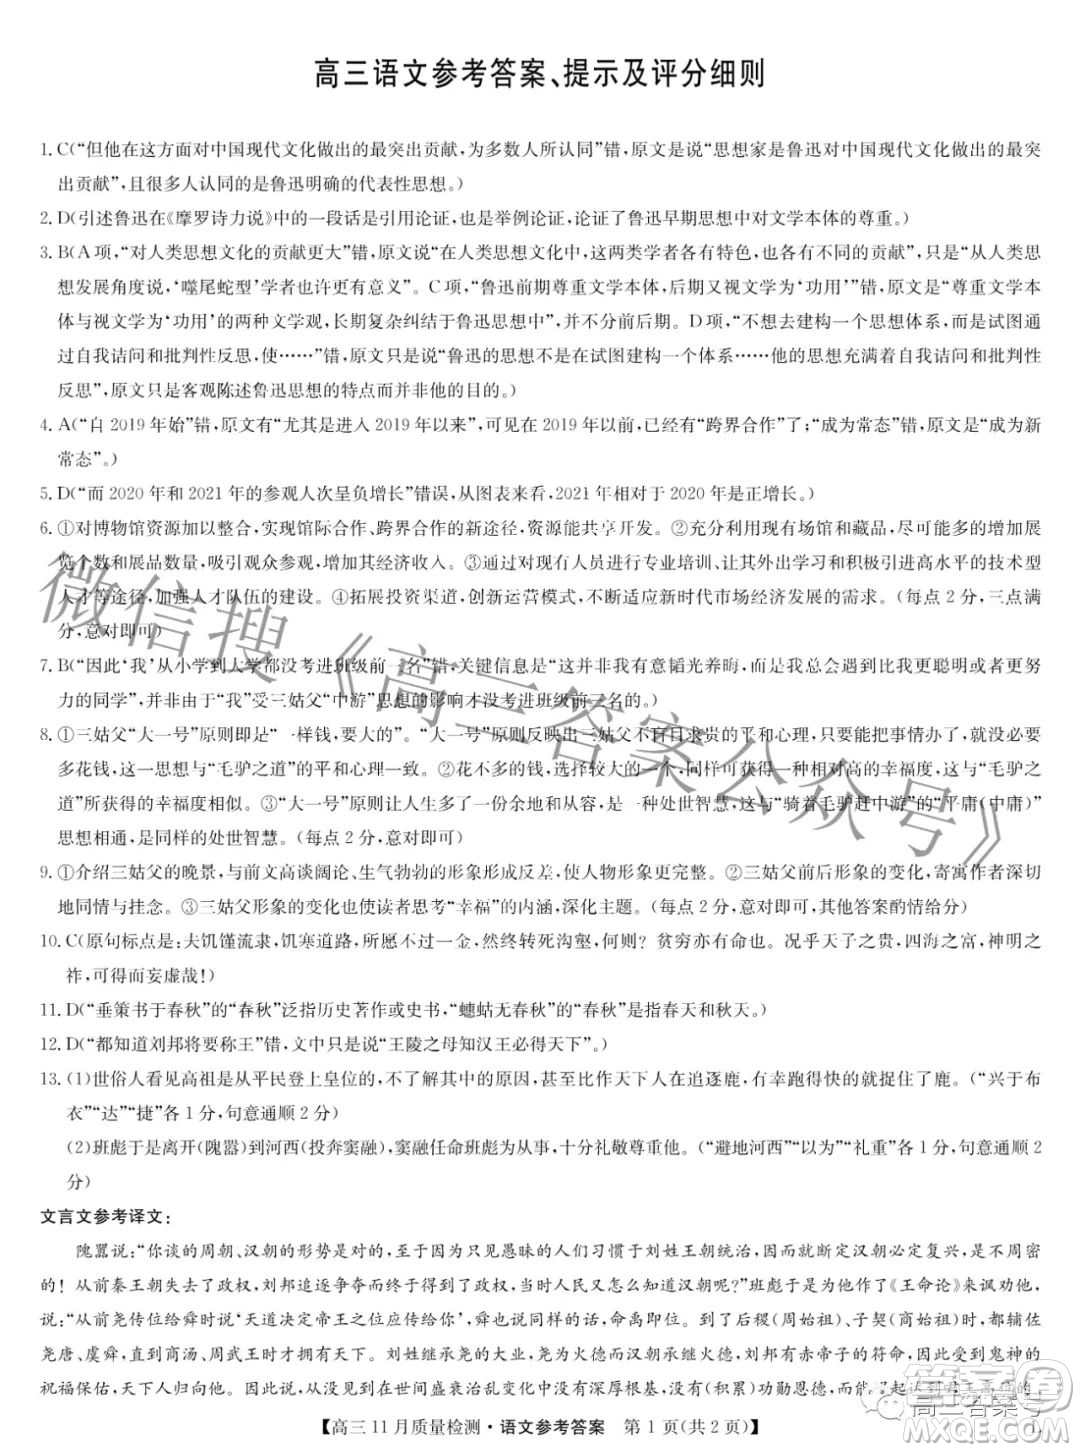 高三语文参考答案、提示及评分细则
1. C(“但他在这方面对中国现代文化做出的最突出贡献,为多数人所认同”错,原文是说“思想家是鲁迅对中国现代文化做出的最突
出贡献”,且很多人认同的是鲁迅明确的代表性思想。)
2. D(引述鲁迅在《摩罗诗力说》中的一段话是引用论证,也是举例论证,论证了鲁迅早期思想中对文学本体的尊重。)
3. B(A 项,“对人类思想文化的贡献更大”错,原文说“在人类思想文化中,这两类学者各有特色,也各有不同的贡献”,只是“从人类思
想发展角度说,‘噬尾蛇型’学者也许更有意义”。C 项,“鲁迅前期尊重文学本体,后期又视文学为‘功用’”错,原文是“尊重文学本
体与视文学为‘功用’的两种文学观,长期复杂纠结于鲁迅思想中”,并不分前后期。D 项,“不想去建构一个思想体系,而是试图通
过自我诘问和批判性反思,使……”错,原文是说“鲁迅的思想不是在试图建构一个体系……他的思想充满着自我诘问和批判性
反思”,原文只是客观陈述鲁迅思想的特点而并非他的目的。)
4. A(“自 2019 年始”错,原文有“尤其是进入 2019 年以来”,可见在 2019 年以前,已经有“跨界合作”了;“成为常态”错,原文是“成为新
常态”。)
5. D(“而 2020 年和 2021 年的参观人次呈负增长”错误,从图表来看,2021 年相对于 2020 年是正增长。)
6. ①对博物馆资源加以整合,实现馆际合作、跨界合作的新途径,资源共享。②充分利用现有场馆和藏品,尽可能多的增加展
览个数和展品数量,吸引观众参观,增加其经济收入。③通过对现有人员进行专业培训、让其外出学习和积极引进高水平的技术型
人才等途径,加强人才队伍的建设。④拓展投资渠道,创新运营模式,以适应新时代市场经济发展的需求。(每点 2 分,三点满
分,意对即可)
7. B(“因此‘我’从小学到大学都没考进班级前三名”错,关键信息是“这并非我有意韬光养晦,而是我总会遇到比我更聪明或者更努
力的同学”,并非由于“我”受三姑父“中游”思想的影响才没考进班级前三名的。)
8. ①三姑父“大一号”原则即是“一样钱,要大的”。“大一号”原则反映出三姑父不盲目求贵的平和心理,只要适用,一般情况下没必要
多花钱,这一思想与“毛驴之道”的平和心理一致。②花不多的钱,选择较大的一个,同样可获得一种较高的幸福度,这与“毛驴之道”
所获得的幸福度相似。③“大一号”原则让人生多了一份余地和从容,是一种处世智慧,这与“骑着毛驴赶中游”的“平庸(中庸)”
思想相通,是同样的处世智慧。(每点 2 分,意对即可)
9. ①介绍三姑父的晚景,与前文高谈阔论、生气勃勃的形象形成反差,使人物形象更丰富、更完整。②三姑父前后形象,寄寓作者深切
地同情与挂念。③三姑父形象的变化也使读者思考“幸福”的内涵,深化主题。(每点 2 分,其他答案酌情给分)
10. C(原句标点是:夫饥馑流隶,饥寒道路,所愿不过一金,然终转死沟壑,何则?贫穷亦有命也。况乎天子之贵,四海之富,神明之
祚,可得而妄虚哉!)
11. D(“垂策书于春秋”的“春秋”泛指历史著作或史书,“蟪蛄无春秋”的“春秋”是指春天和秋天。)
12. D(“都知道刘邦将要称王”错,文中只是说“王陵之母知汉王必得天下”。)
13. (1)世俗人看见高祖是从平民登上皇位的,不了解其中的原因,甚至比作天下人在追逐鹿,有幸跑得快的就捉住了鹿。(“兴于布
衣”“达”“捷”各 1 分,句意通顺 2 分)
(2)班彪于是离开(隗嚣)到河西(投奔窦融),窦融任命班彪为从事,十分礼敬尊重他。(“避地河西”“以为”“礼重”各 1 分,句意通顺 2
分)
文言文参考译文:
隗嚣说:“你谈的周朝、汉朝的形势是对的,至于因为只见愚昧的人们习惯于刘姓王朝统治,就断定汉朝必定复兴,是不周密
的!从前秦王朝失去了政权,刘邦追逐争夺而终于得到了政权,当时人民又怎么知道汉朝呢?”班彪于是为他作了《王命论》来讽劝他,
说:“从前尧传位给舜时说‘天道决定帝王之位应传给你’,舜也以同样的话,命禹即位。到了后稷(周始祖)、子契(商始祖),都辅佐
尧唐、虞舜,直到商汤、周武王时才拥有天下。刘姓继承尧的大业,尧为火德而汉朝继之,刘邦有赤帝子的符命,因受到鬼神的
祝福保佑,天下人归向他。因此说,没有见过在世间盛衰治乱变化中没有深厚根基,没有(积累)功勋恩德,而能
【高三 11 月质量检测·语文参考答案 第 1 页(共 2 页)】
微信搜《高三答案公众号》
高三答案号